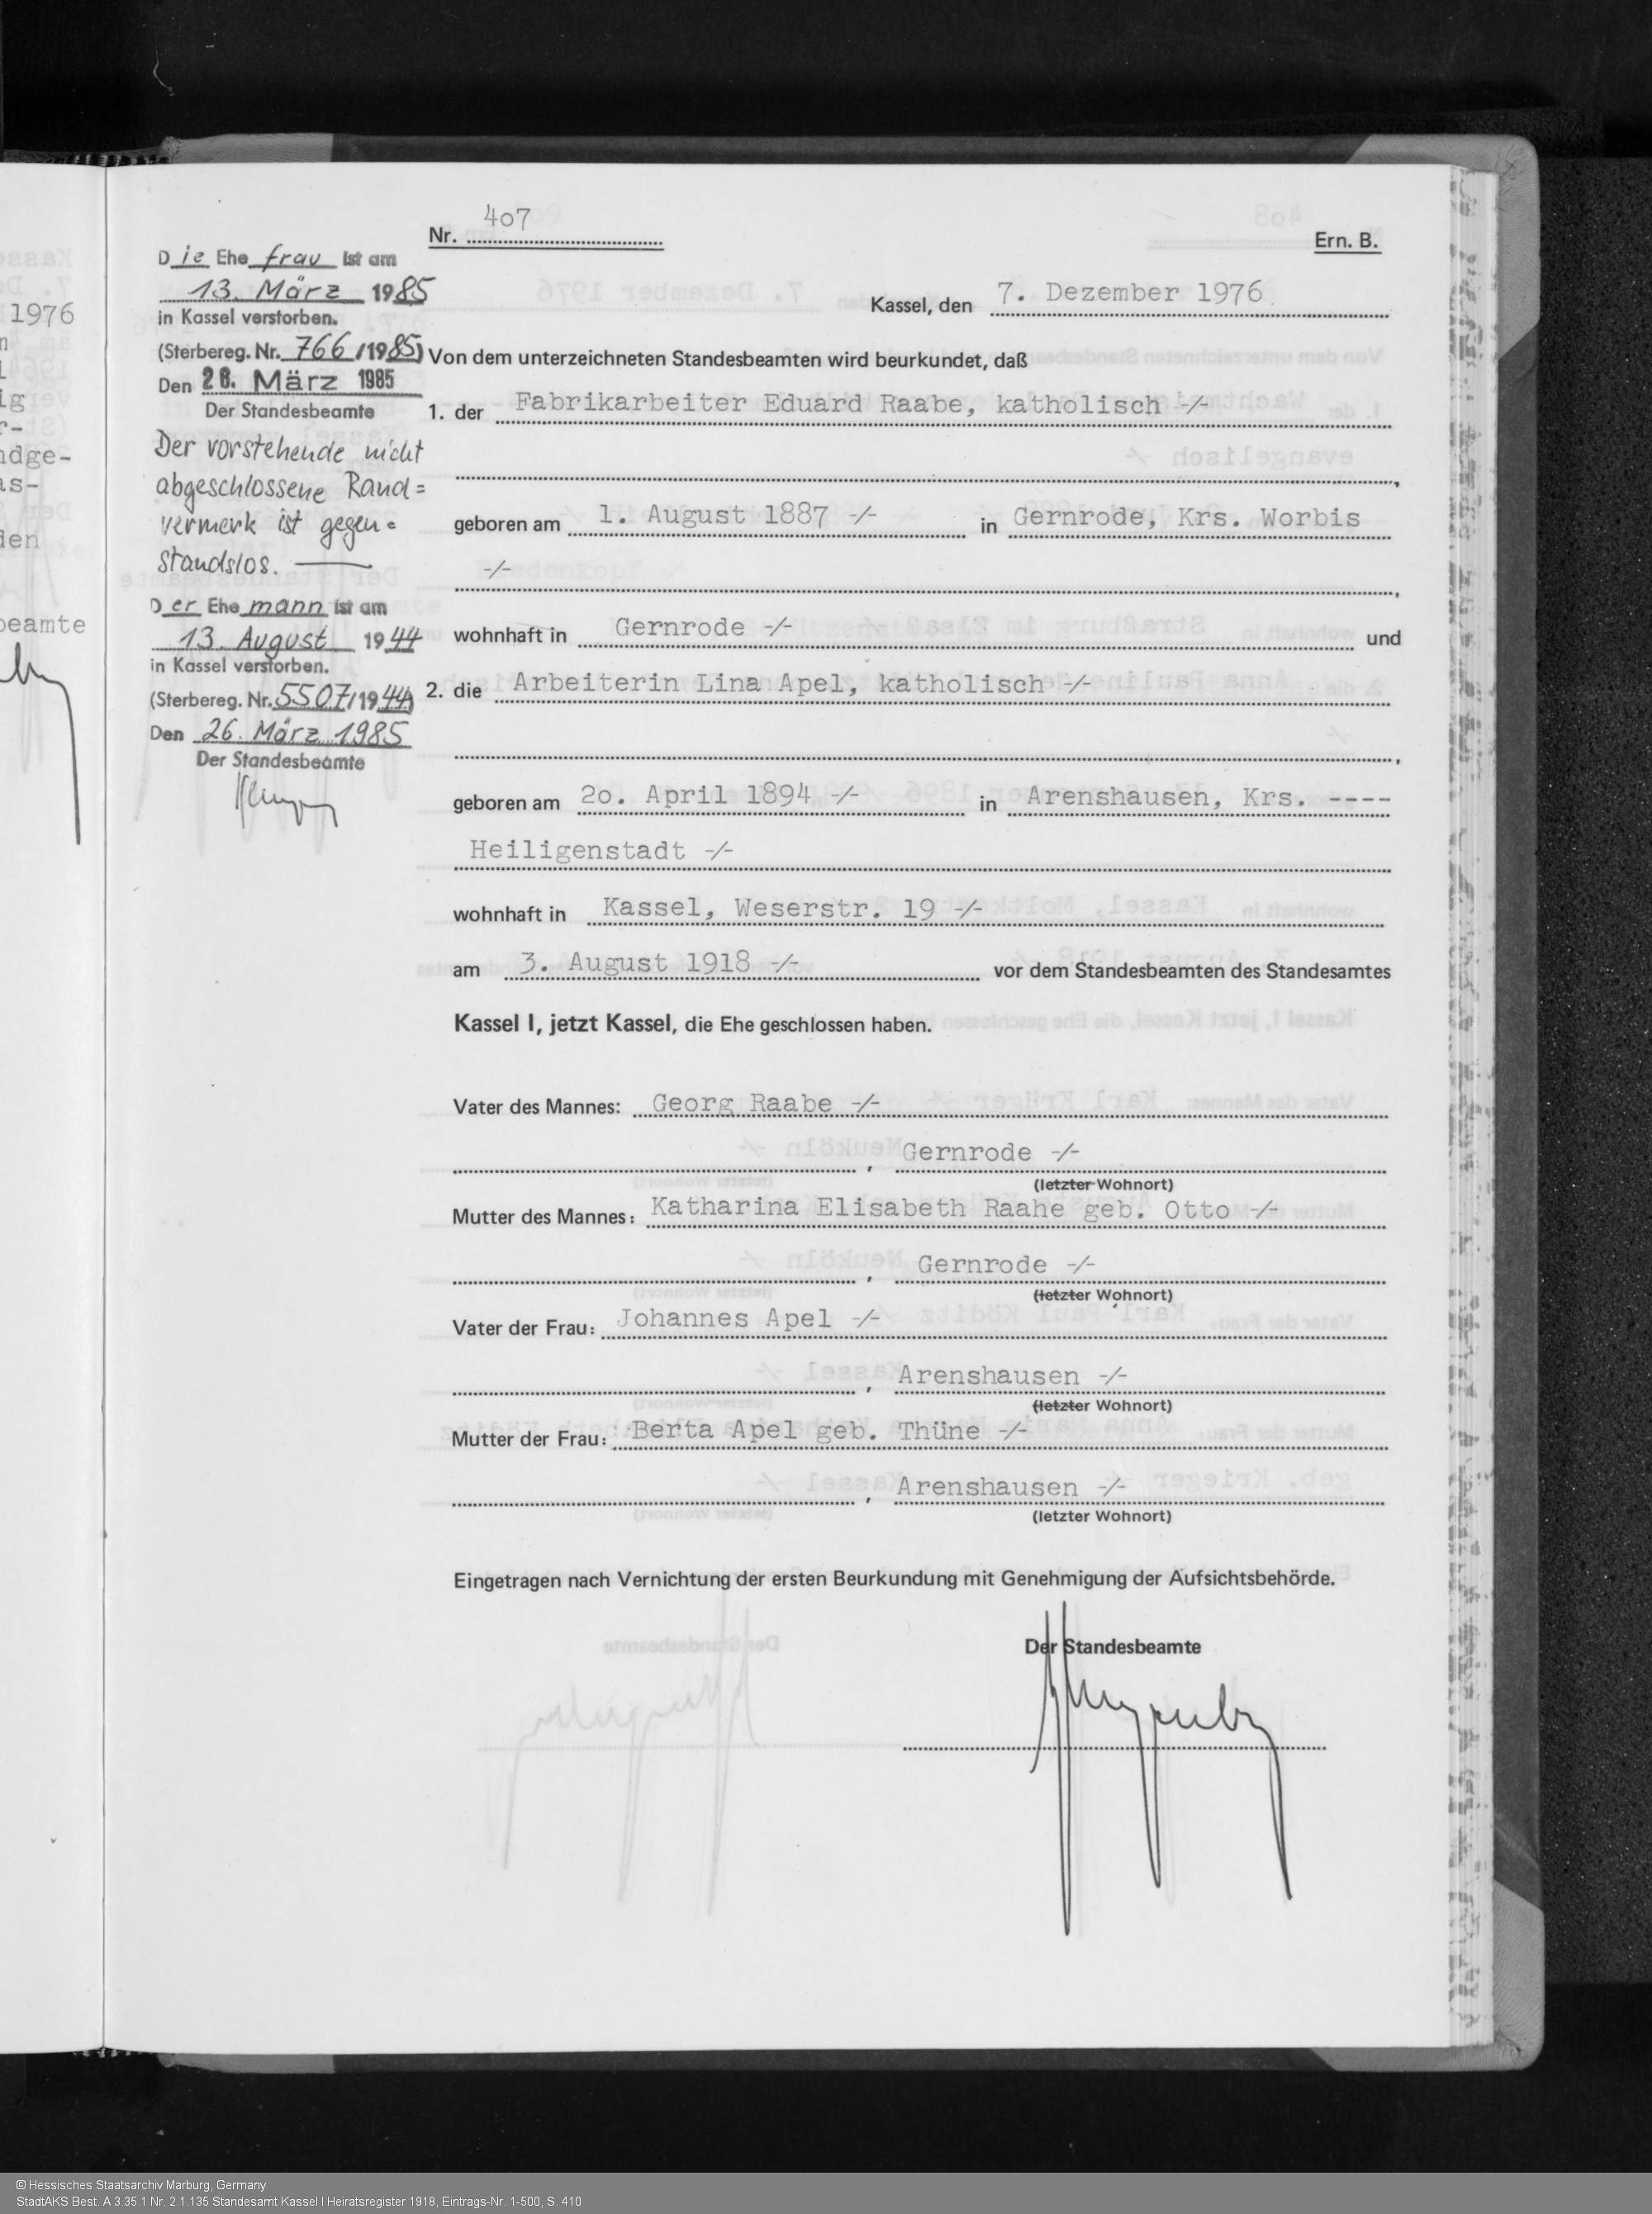 Nr. 407
Ern. B.
Kassel, den 7. Dezember 1976
Die Ehefrau ist am
13. März 1985
in Kassel verstorben.
(Sterbereg. Nr. 766/1985)
Den 28. März 1985
Der Standesbeamte
Der vorstehende nicht
abgeschlossene Rand=
vermerk ist gegen=
standslos. —
Der Ehemann ist am
13. August 1944
in Kassel verstorben.
(Sterbereg. Nr. 5507/1944)
Den 26. März 1985
Der Standesbeamte
Von dem unterzeichneten Standesbeamten wird beurkundet, daß
1. der Fabrikarbeiter Eduard Raabe, katholisch -/-
,
geboren am 1. August 1887 -/- in Gernrode, Krs. Worbis
-/- ,
wohnhaft in Gernrode -/- und
2. die Arbeiterin Lina Apel, katholisch -/-
,
geboren am 20. April 1894 -/- in Arenshausen, Krs. ----
Heiligenstadt -/-
wohnhaft in Kassel, Weserstr. 19 -/-
am 3. August 1918 -/- vor dem Standesbeamten des Standesamtes
Kassel I, jetzt Kassel, die Ehe geschlossen haben.
Vater des Mannes: Georg Raabe -/-
, Gernrode -/-
(letzter Wohnort)
Mutter des Mannes: Katharina Elisabeth Raahe geb. Otto -/-
, Gernrode -/-
(letzter Wohnort)
Vater der Frau: Johannes Apel -/-
, Arenshausen -/-
(letzter Wohnort)
Mutter der Frau: Berta Apel geb. Thüne -/-
, Arenshausen -/-
(letzter Wohnort)
Eingetragen nach Vernichtung der ersten Beurkundung mit Genehmigung der Aufsichtsbehörde.
Der Standesbeamte
1976
ig
r-
ndge-
as-
den
beamte
© Hessisches Staatsarchiv Marburg, Germany
StadtAKS Best. A 3.35.1 Nr. 2.1.135 Standesamt Kassel I Heiratsregister 1918, Eintrags-Nr. 1-500, S. 410